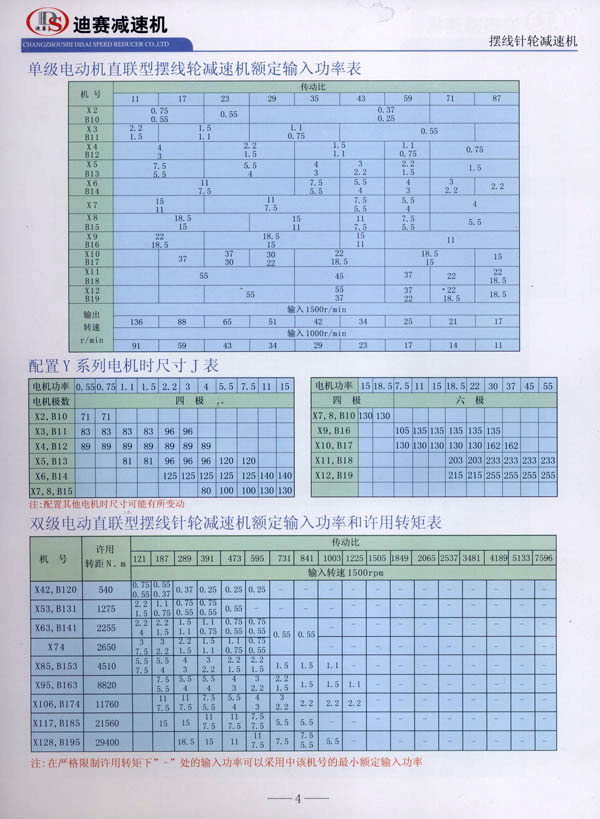 迪赛减速机
CHANGZHOUSHI DISAI SPEED REDUCER CO.,LTD
摆线针轮减速机
单级电动机直联型摆线轮减速机额定输入功率表
机 号 传动比
11 17 23 29 35 43 59 71 87
X2 B10 0.75 0.55 0.55 0.37 0.25
X3 B11 2.2 1.5 1.5 1.1 1.1 0.75 0.55
X4 B12 4 3 2.2 1.5 1.5 1.1 1.1 0.75 0.75
X5 B13 7.5 5.5 5.5 4 4 3 3 2.2 2.2 1.5 1.5
X6 B14 11 7.5 7.5 5.5 5.5 4 4 3 3 2.2 2.2
X7 15 11 11 7.5 7.5 5.5 5.5 4 4
X8 B15 18.5 15 15 11 11 7.5 7.5 5.5 5.5
X9 B16 22 18.5 18.5 15 15 11 11
X10 B17 37 37 30 30 22 22 18.5 18.5 15 15
X11 B18 55 45 37 22 22 18.5
X12 B19 55 55 37 37 22 22 18.5 18.5
输出 转速 r/min
输入1500r/min
136 88 65 51 42 34 25 21 17
输入1000r/min
91 59 43 34 29 23 17 14 11
配置Y系列电机时尺寸J表
电机功率 0.55 0.75 1.1 1.5 2.2 3 4 5.5 7.5 11 15
电机极数 四 极
X2,B10 71 71
X3,B11 83 83 83 83 96 96
X4,B12 89 89 89 89 89 89 89
X5,B13 81 81 96 96 96 120 120
X6,B14 125 125 125 125 125 140 140
X7,8,B15 80 100 100 130 130
注:配置其他电机时尺寸可能有所变动
电机功率 15 18.5 7.5 11 15 18.5 22 30 37 45 55
四 极 六 极
X7,8,B10 130 130
X9,B16 105 135 135 135 135 135
X10,B17 130 130 130 130 130 162 162
X11,B18 203 203 233 233 233 233
X12,B19 215 215 255 255 255 255
双级电动直联型摆线针轮减速机额定输入功率和许用转矩表
机 号 许用 转距N.m 传动比
121 187 289 391 473 595 731 841 1003 1225 1505 1849 2065 2537 3481 4189 5133 7596
输入转速1500rpm
X42,B120 540 0.75 0.55 0.55 0.37 0.37 0.25 0.25 0.25 - - - - - - - - - - - -
X53,B131 1275 2.2 1.5 1.1 0.75 0.75 0.55 0.75 0.55 0.55 - - - - - - - - - - - - -
X63,B141 2255 2.2 4 2.2 1.5 1.5 1.1 1.1 0.75 0.75 0.55 0.75 0.55 0.55 0.55 - - - - - - - - - -
X74 2650 3 7.5 3 2.2 2.2 1.5 1.5 1.1 1.1 0.75 0.75 0.55 - - - - - - - - - -
X85,B153 4510 5.5 7.5 5.5 4 4 3 3 2.2 2.2 1.5 2.2 1.5 1.5 1.5 1.1 - - - - - - - - -
X95,B163 8820 7.5 5.5 5.5 4 5.5 4 4 3 3 2.2 2.2 1.5 1.5 1.5 1.1 - - - - - - - -
X106,B174 11760 11 7.5 11 7.5 7.5 5.5 5.5 4 4 3 3 2.2 2.2 2.2 2.2 - - - - - - - -
X117,B185 21560 15 15 11 7.5 11 7.5 7.5 5.5 5.5 5.5 - - - - - - - - - -
X128,B195 29400 18.5 15 11 11 7.5 7.5 7.5 5.5 5.5 - - - - - - - - -
注:在严格限制许用转矩下"-"处的输入功率可以采用中该机号的最小额定输入功率
4